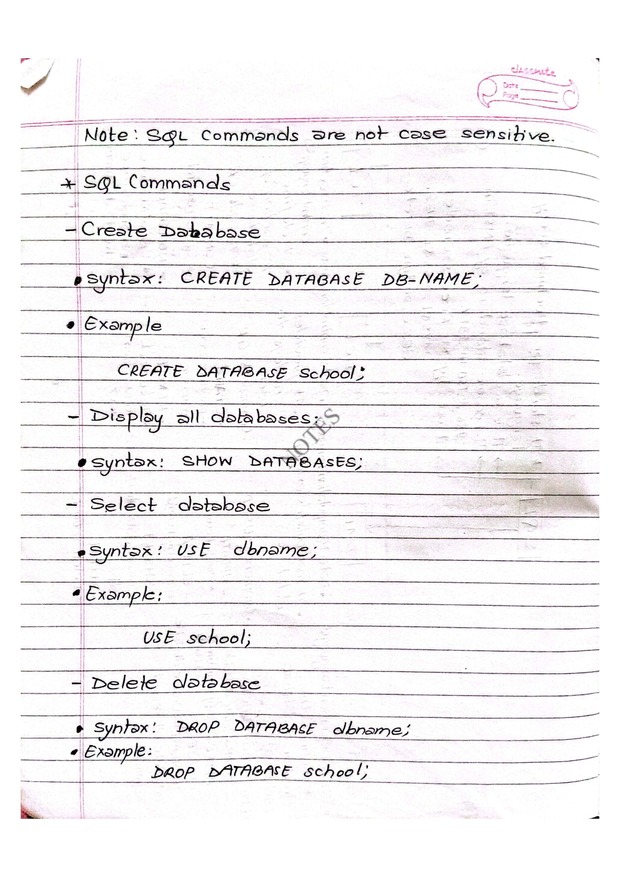 classmate
Date
Page
Note: SQL commands are not case sensitive.
* SQL Commands
- Create Database
• syntax: CREATE DATABASE DB-NAME;
• Example
CREATE DATABASE school;
- Display all databases:
NOTES
• syntax: SHOW DATABASES;
- Select database
• syntax: USE dbname;
• Example:
USE school;
- Delete database
• syntax: DROP DATABASE dbname;
• Example:
DROP DATABASE school;